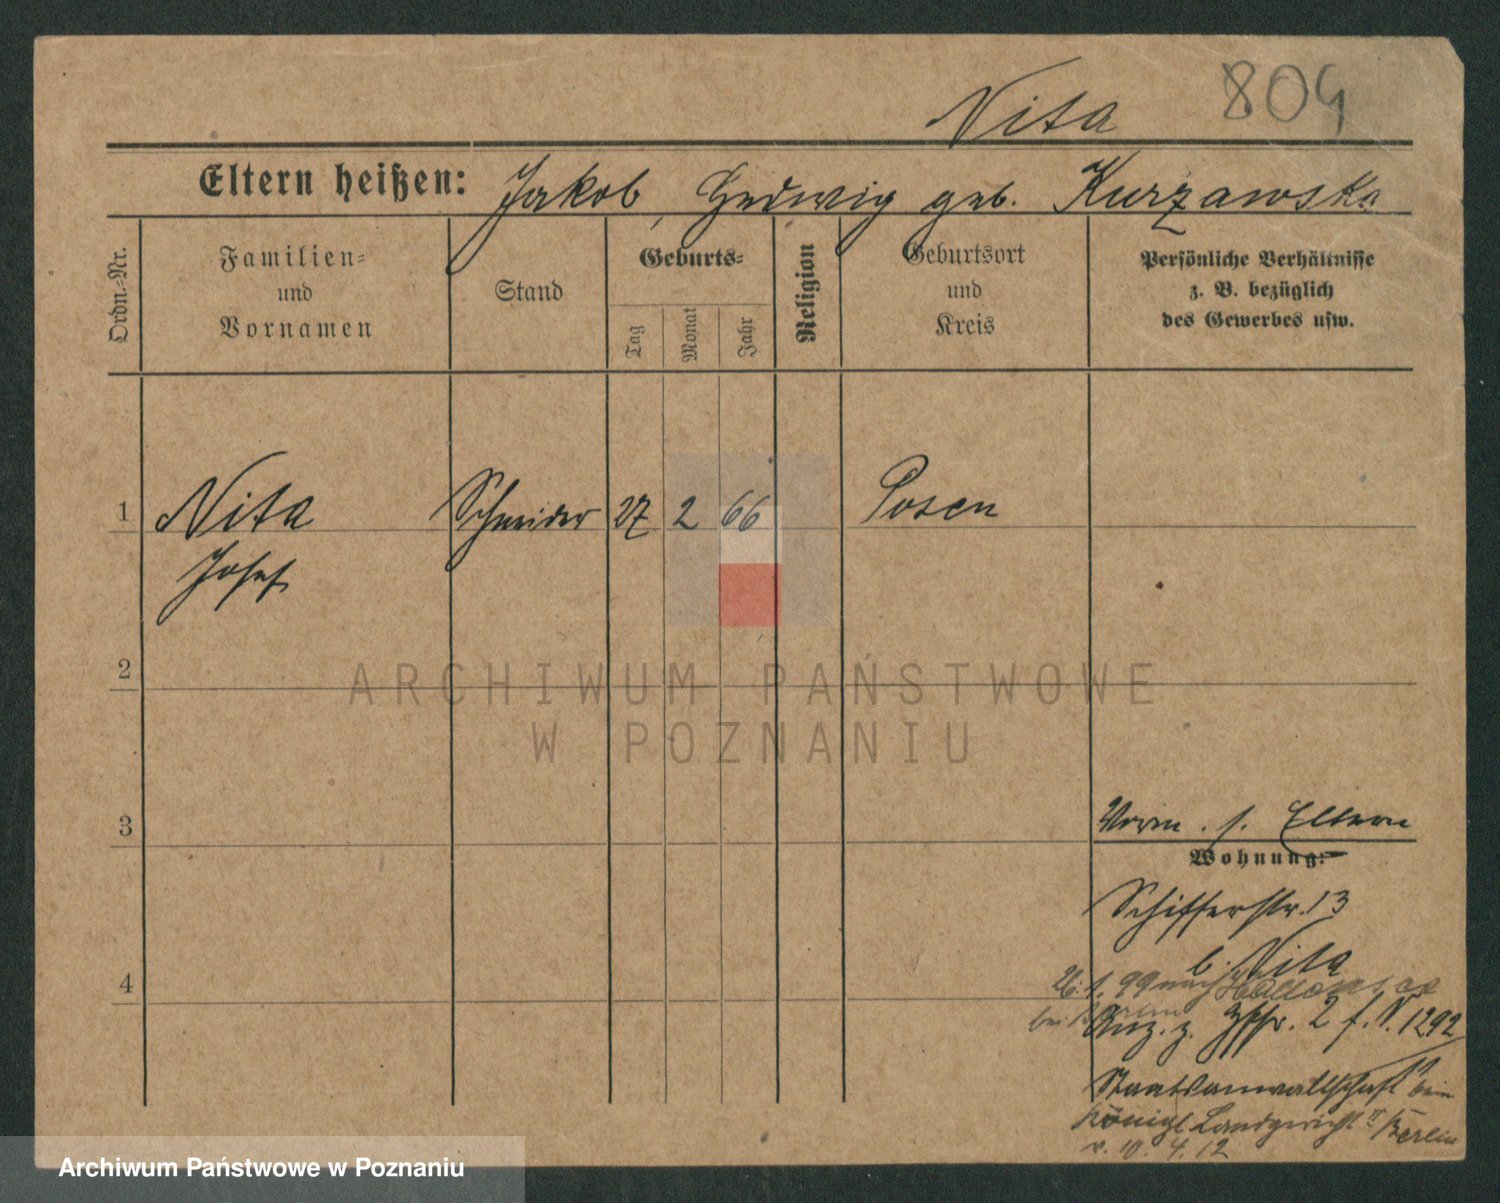 Nita 804
Eltern heißen: Jakob, Hedwig geb. Kurzawska
Ordn.-Nr.
Familien-
und
Vornamen
Stand
Geburts-
Tag
Monat
Jahr
Religion
Geburtsort
und
Kreis
Persönliche Verhältnisse
z. B. bezüglich
des Gewerbes usw.
1 Nita Schneider 27 2 66 Posen
Josef
2
ARCHIWUM PAŃSTWOWE
W POZNANIU
3
Vorm. s. Eltern
Wohnung:
Schifferstr. 13
b. Nita
4
26. 1. 99 nach
bei Berlin
Anz. z. 2 f. N. 1292
Staatsanwaltschaft beim
Königl. Landgericht II Berlin
v. 10. 4. 12
Archiwum Państwowe w Poznaniu